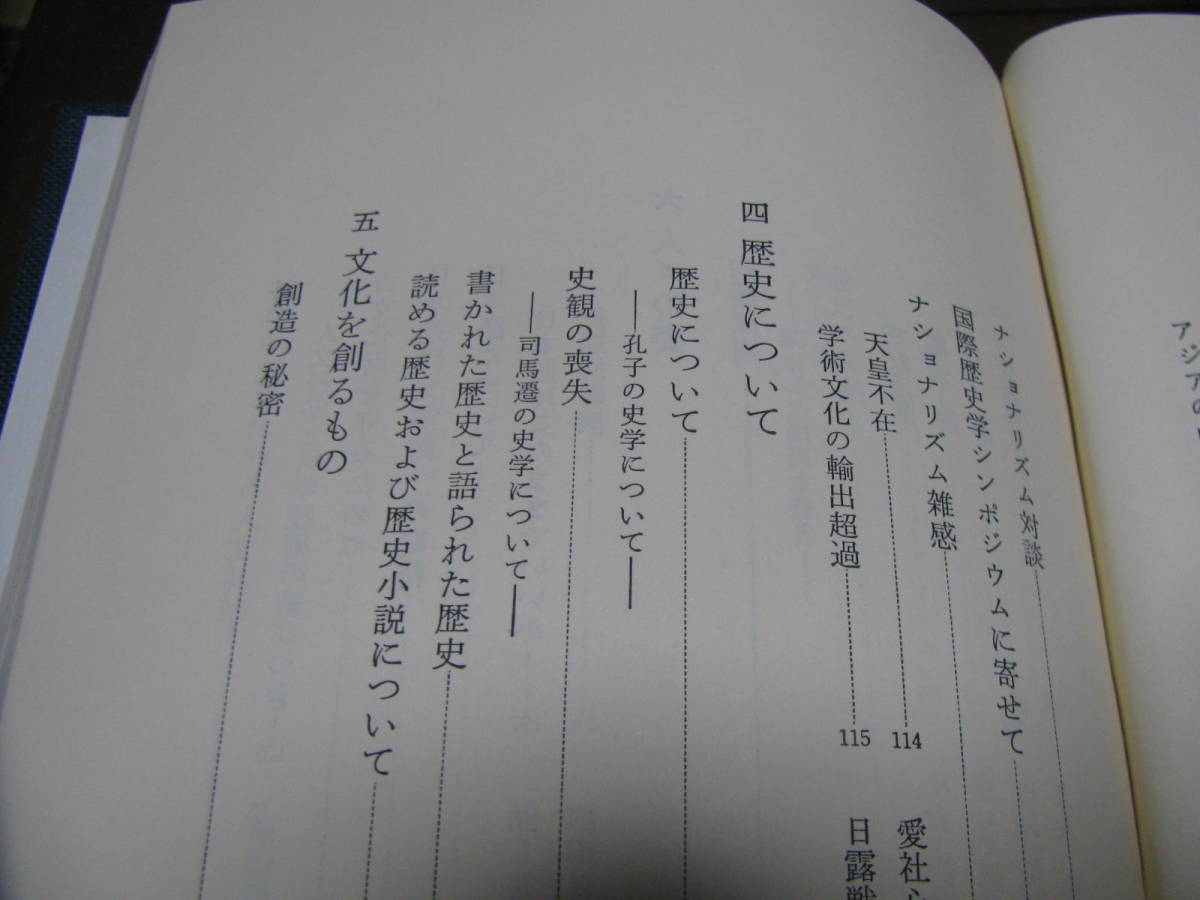 アジアの
ナショナリズム対談
国際歴史学シンポジウムに寄せて
ナショナリズム雑感
天皇不在 114 愛社心
学術文化の輸出超過 115 日露戦
四 歴史について
歴史について
――孔子の史学について――
史観の喪失
――司馬遷の史学について――
書かれた歴史と語られた歴史
読める歴史および歴史小説について
五 文化を創るもの
創造の秘密